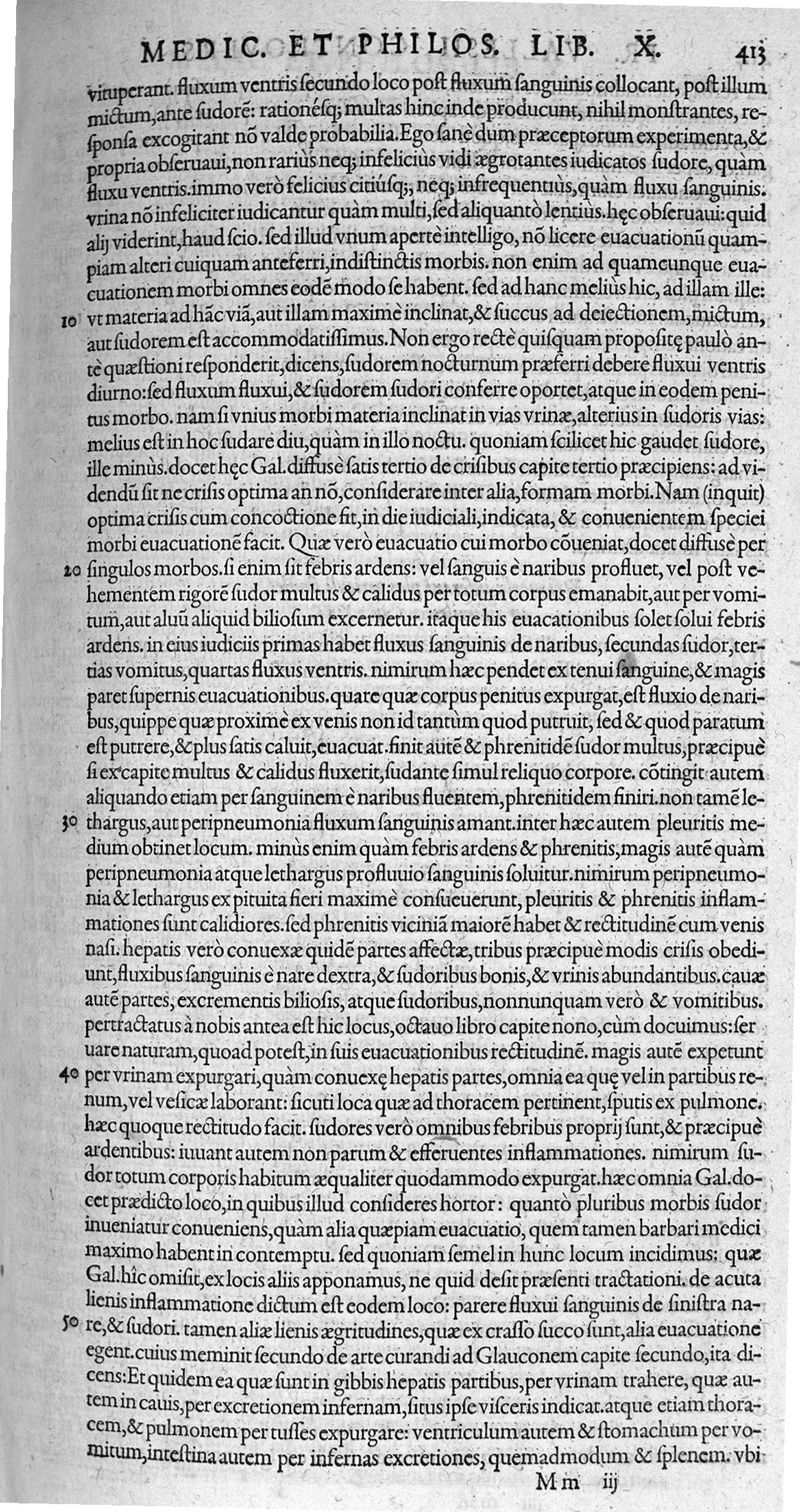 MEDIC. ET PHILOS. LIB. X. 413
vituperant. fluxum ventris secundo loco post fluxum sanguinis collocant, post illum
mictum,ante sudorẽ: rationésq; multas hinc inde producunt, nihil monstrantes, re-
sponsa excogitant nõ valde probabilia.Ego sanè dum præceptorum experimenta,&
propria obseruaui,non rariùs neq; infeliciùs vidi ægrotantes iudicatos sudore, quàm
fluxu ventris.immo verò felicius citiúsq;, neq; infrequentiùs,quàm fluxu sanguinis.
vrina nõ infeliciter iudicantur quàm multi,sed aliquantò lentiùs.hęc obseruaui:quid
alij viderint,haud scio. sed illud vnum apertè intelligo, nõ licere euacuationũ quam-
piam alteri cuiquam anteferri,indistinctis morbis. non enim ad quamcunque eua-
cuationem morbi omnes eodẽ modo se habent. sed ad hanc meliùs hic, ad illam ille:
10 vt materia ad hãc viã,aut illam maximè inclinat,& succus ad deiectionem,mictum,
aut sudorem est accommodatissimus.Non ergo rectè quisquam propositę paulò an-
tè quæstioni responderit,dicens,sudorem nocturnum præferri debere fluxui ventris
diurno:sed fluxum fluxui,& sudorem sudori conferre oportet,atque in eodem peni-
tus morbo. nam si vnius morbi materia inclinat in vias vrinæ,alterius in sudoris vias:
melius est in hoc sudare diu,quàm in illo noctu. quoniam scilicet hic gaudet sudore,
ille minùs.docet hęc Gal.diffusè satis tertio de crisibus capite tertio præcipiens: ad vi-
dendũ sit ne crisis optima an nõ,considerare inter alia,formam morbi.Nam (inquit)
optima crisis cum concoctione fit,in die iudiciali,indicata, & conuenientem speciei
morbi euacuationẽ facit. Quæ verò euacuatio cui morbo cõueniat,docet diffusè per
20 singulos morbos.si enim sit febris ardens: vel sanguis è naribus profluet, vel post ve-
hementem rigorẽ sudor multus & calidus per totum corpus emanabit,aut per vomi-
tum,aut aluũ aliquid biliosum excernetur. itaque his euacationibus solet solui febris
ardens. in eius iudiciis primas habet fluxus sanguinis de naribus, secundas sudor,ter-
tias vomitus,quartas fluxus ventris. nimirum hæc pendet ex tenui sanguine,& magis
paret supernis euacuationibus.quare quæ corpus penitus expurgat,est fluxio de nari-
bus,quippe quæ proximè ex venis non id tantùm quod putruit, sed & quod paratum
est putrere,&plus satis caluit,euacuat.finit autẽ & phrenitidẽ sudor multus,præcipuè
si ex capite multus & calidus fluxerit,sudante simul reliquo corpore. cõtingit autem
aliquando etiam per sanguinem è naribus fluentem,phrenitidem finiri.non tamẽ le-
30 thargus,aut peripneumonia fluxum sanguinis amant.inter hæc autem pleuritis me-
dium obtinet locum. minùs enim quàm febris ardens & phrenitis,magis autẽ quàm
peripneumonia atque lethargus profluuio sanguinis soluitur.nimirum peripneumo-
nia & lethargus ex pituita fieri maximè consueuerunt, pleuritis & phrenitis inflam-
mationes sunt calidiores.sed phrenitis viciniã maiorẽ habet & rectitudinẽ cum venis
nasi. hepatis verò conuexæ quidẽ partes affectæ,tribus præcipuè modis crisis obedi-
unt,fluxibus sanguinis è nare dextra,& sudoribus bonis,& vrinis abundantibus.cauæ
autẽ partes, excrementis biliosis, atque sudoribus,nonnunquam verò & vomitibus.
pertractatus à nobis antea est hic locus,octauo libro capite nono,cùm docuimus:ser
uare naturam,quoad potest,in suis euacuationibus rectitudinẽ. magis autẽ expetunt
40 per vrinam expurgari,quàm conuexę hepatis partes,omnia ea quę vel in partibus re-
num,vel vesicæ laborant: sicuti loca quæ ad thoracem pertinent,sputis ex pulmone.
hæc quoque rectitudo facit. sudores verò omnibus febribus proprij sunt,& præcipuè
ardentibus: iuuant autem non parum & efferuentes inflammationes. nimirum su-
dor totum corporis habitum æqualiter quodammodo expurgat.hæc omnia Gal.do-
cet prædicto loco,in quibus illud consideres hortor: quantò pluribus morbis sudor
inueniatur conueniens,quàm alia quæpiam euacuatio, quem tamen barbari medici
maximo habent in contemptu. sed quoniam semel in hunc locum incidimus: quæ
Gal.hîc omisit,ex locis aliis apponamus, ne quid desit præsenti tractationi. de acuta
lienis inflammatione dictum est eodem loco: parere fluxui sanguinis de sinistra na-
50 re,& sudori. tamen aliæ lienis ægritudines,quæ ex crasso succo sunt,alia euacuatione
egent.cuius meminit secundo de arte curandi ad Glauconem capite secundo,ita di-
cens:Et quidem ea quæ sunt in gibbis hepatis partibus,per vrinam trahere, quæ au-
tem in cauis,per excretionem infernam,situs ipse visceris indicat.atque etiam thora-
cem,& pulmonem per tusses expurgare: ventriculum autem & stomachum per vo-
mitum,intestina autem per infernas excretiones, quemadmodum & splenem. vbi
M m iij